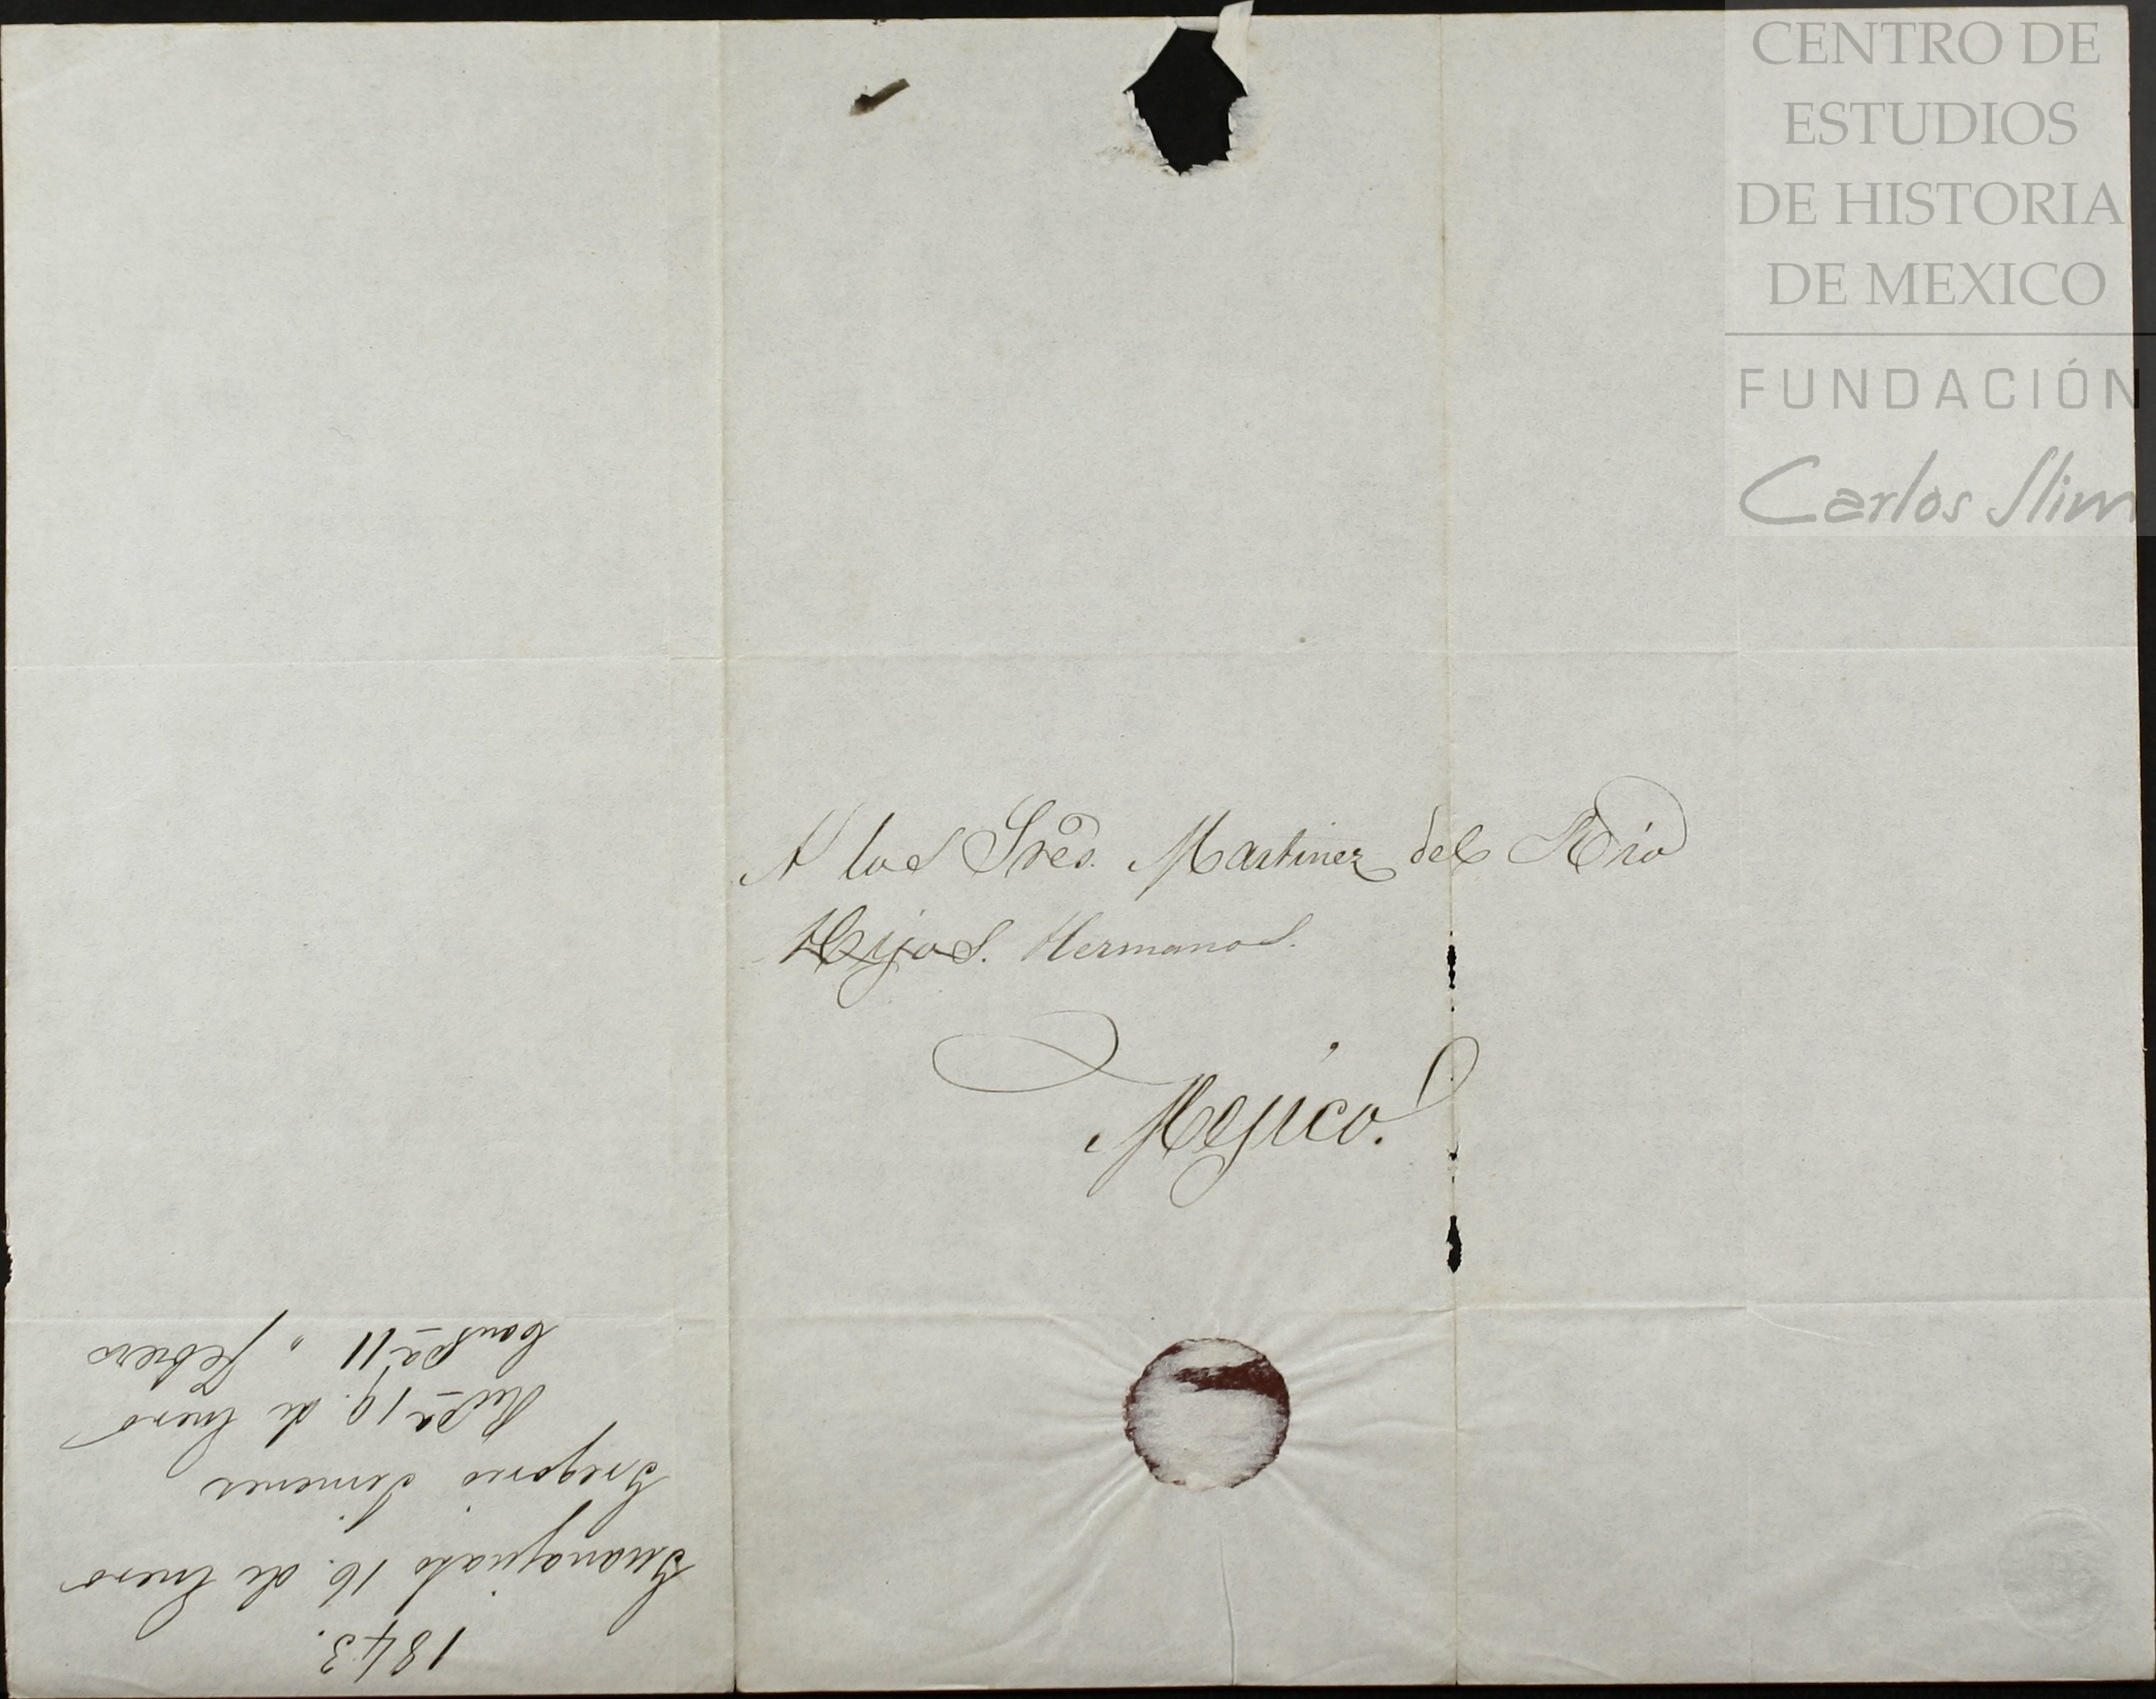 CENTRO DE
ESTUDIOS
DE HISTORIA
DE MEXICO
FUNDACIÓN
Carlos Slim
A los Sres. Martinez del Rio
Hijos. Hermanos.
Mejico.
1843.
Guanajuato 16. de Enero
Gregorio Jimenez
19. de Enero
11 " Febrero